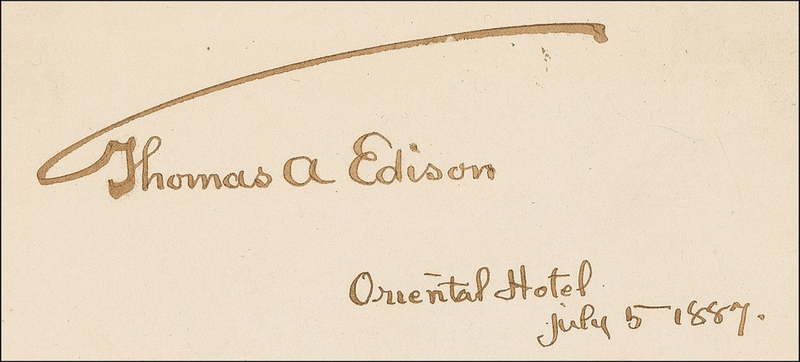 Thomas A Edison
Oriental Hotel
july 5 1887.